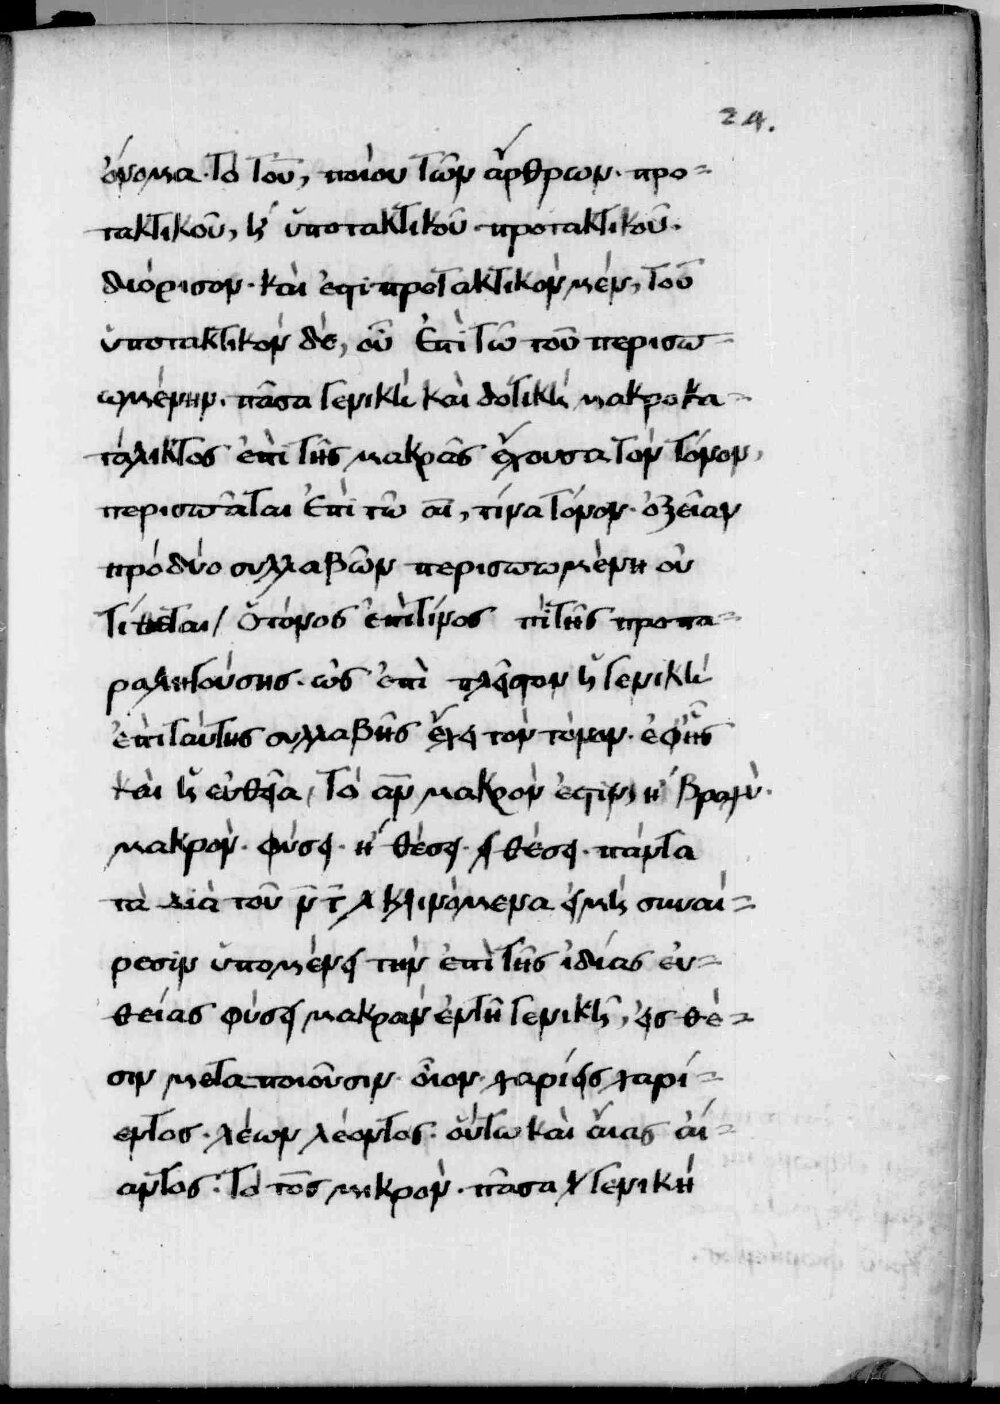 24.
ὄνομα· τὸ τοῦ, ποίου τῶν ἄρθρων· προ-
τακτικοῦ, ἢ ὑποτακτικοῦ· προτακτικοῦ.
διόρισον· καὶ ἐστι προτακτικὸν μὲν, τοῦ
ὑποτακτικὸν δὲ, οὗ ἐπὶ τῶ τοῦ περισπω-
ωμένην. πᾶσα γενικὴ καὶ δοτικὴ μακροκα-
τάληκτος ἐπὶ τῆς μακρᾶς ἔχουσα τὸν τόνον,
περισπᾶται ἐπὶ τῶ αν, τίνα τόνον· ὀξεῖαν
πρὸ δύο συλλαβῶν περισπωμένη οὐ
τίθεται / ὁ τόνος ἐπὶ τίνος πὶ τῆς προπα-
ραληγούσης· ὡς ἐπὶ πλεῖστον ἡ γενικὴ
ἐπὶ ταύτης συλλαβῆς ἔχει τὸν τόνον· ἐφ' ἧς
καὶ ἡ εὐθεῖα / τὸ αν μακρόν ἐστιν, ἢ βραχύ·
μακρόν· φύσει· ἢ θέσει· θέσει· πάντα
τὰ διὰ τοῦ ντ κλινόμενα εἰ μὴ συναί-
ρεσιν ὑπομένει τὴν ἐπὶ τῆς ἰδίας εὐ-
θείας φύσει μακρὰν ἐν τῆ γενικῆ, εἰς θέ-
σιν μεταποιοῦσιν· οἷον· χαρίεις χαρί-
εντος· λέων λέοντος· οὕτω καὶ αἴας αἴ-
αντος· τὸ τος μικρόν· πᾶσα γενικὴ